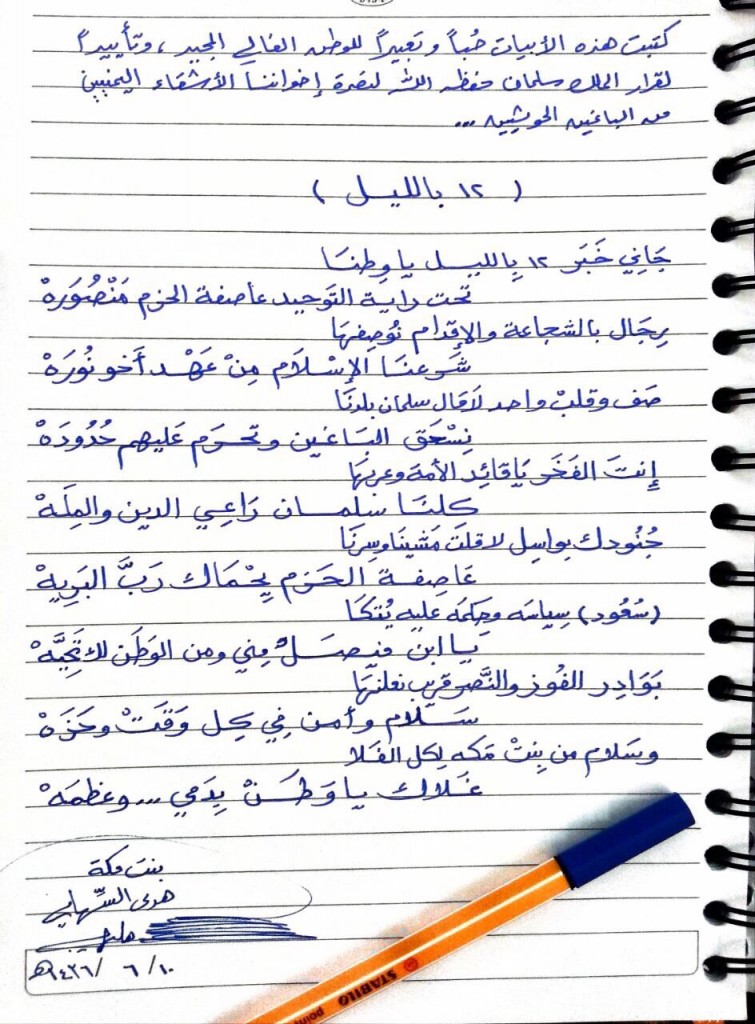 كتبت هذه الأبيات حُباً وتعبيراً للوطن الغالي المجيد، وتأييداً
لقرار الملك سلمان حفظه الله لنصرة إخواننا الأشقاء اليمنيين
من الباغين الحوثيين ...
( ١٢ بالليل )
جَاني خَبَر ١٢ بِالليل يا وطنَا
تحت راية التَوحيد عاصفة الحزم مَنْصُورَهْ
رِجَال بالشجاعة والإقدام نُوصِفهَا
شَرعنَا الإسْلَام مِنْ عَهْد أَخو نُورَهْ
صَف وقلبْ واحد لاقال سلمان بلدنَا
نِسْحَق البَاغين وتحرم عَليهم حُدُودَهْ
إنتَ الفَخَر يَا قائِد الأمة وعربهَا
كلنَا سَلمان رَاعِي الدين والمِلَهْ
جُنُودك بواسِل لا قلتَ مَشينَا وسِرنَا
عَاصِفة الحَزم يِحْمَاك رَبَّ البَرِيهْ
(سُعُود) سِياسَه وحِكمَه عليه يُتكَا
يا ابن فيصَلْ مِني ومن الوَطَن لك تَحِيَّهْ
بَوَادِر الفُوز والنَّصر قريب نعلنهَا
سَلام وأمن فِي كِل وَقَتْ وحَزَهْ
وسَلام من بِنتْ مَكه لِكل الفَلا
غَلاك يا وَطَنْ بِدَمي ... وعظمَهْ
بنت مكة
هدى السّهلي
١٠/ ٦ /١٤٣٦هـ
STABILO
point